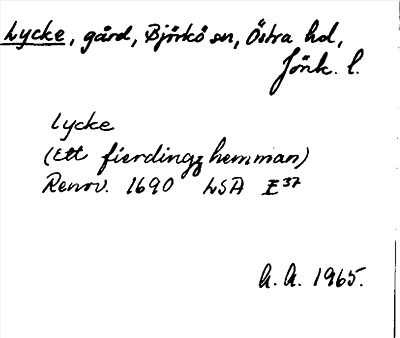 Lycke, gård, Björkö sn, Östra hd,
Jönk. l.
Lycke
(Ett fierdingz hemman)
Renov. 1690 LSA E 37
A. A. 1965.